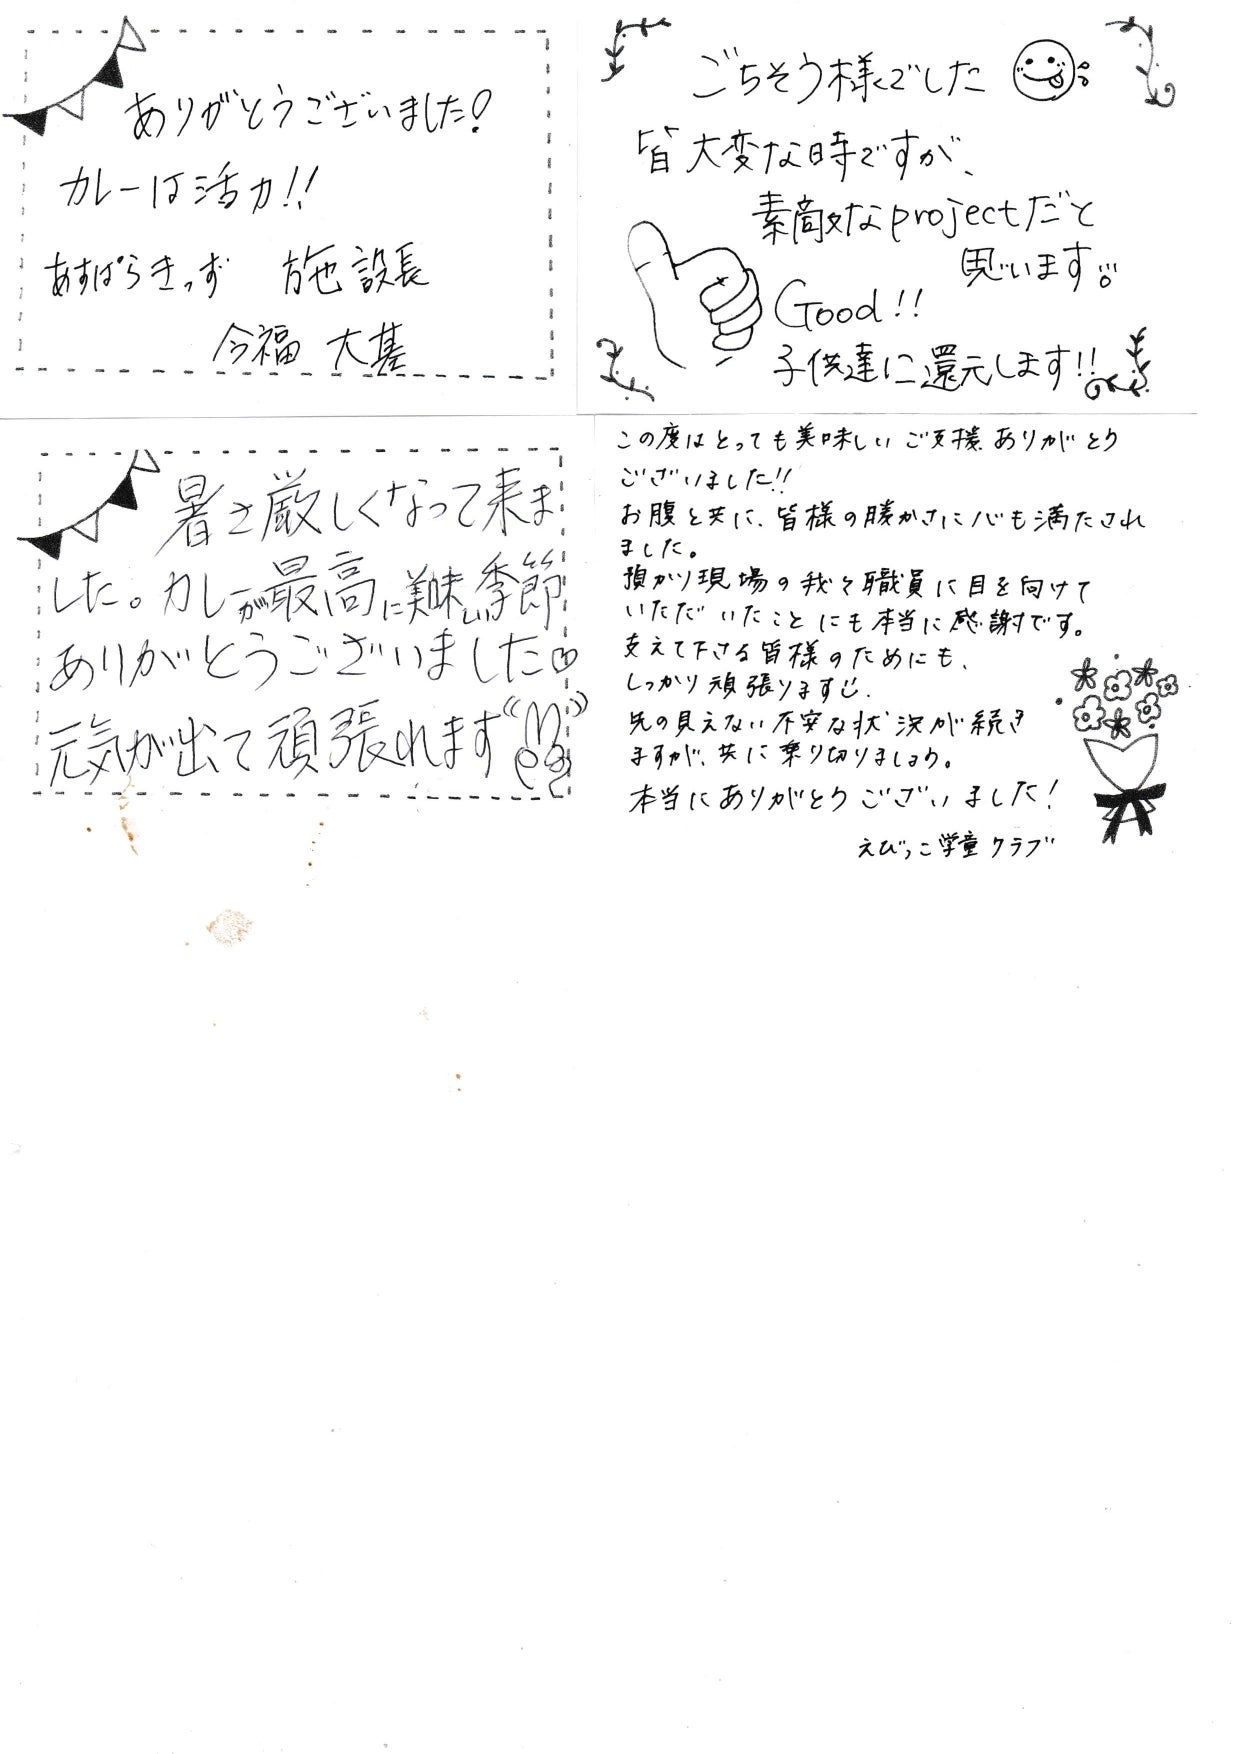 ありがとうございました!
カレーは活力!!
あすぱらきっず 施設長
今福 大基
ごちそう様でした
皆大変な時ですが、
素敵なprojectだと
思います。
Good!!
子供達に還元します!!
暑さ厳しくなって来ま
した。カレーが最高に美味しい季節
ありがとうございました
元気が出て頑張れます
この度はとっても美味しいご支援ありがとう
ございました!!
お腹と共に、皆様の暖かさに心も満たされ
ました。
預かり現場の我々職員に目を向けて
いただいたことにも本当に感謝です。
支えて下さる皆様のためにも、
しっかり頑張ります
先の見えない不安な状況が続き
ますが、共に乗り切りましょう。
本当にありがとうございました!
えびっこ学童クラブ